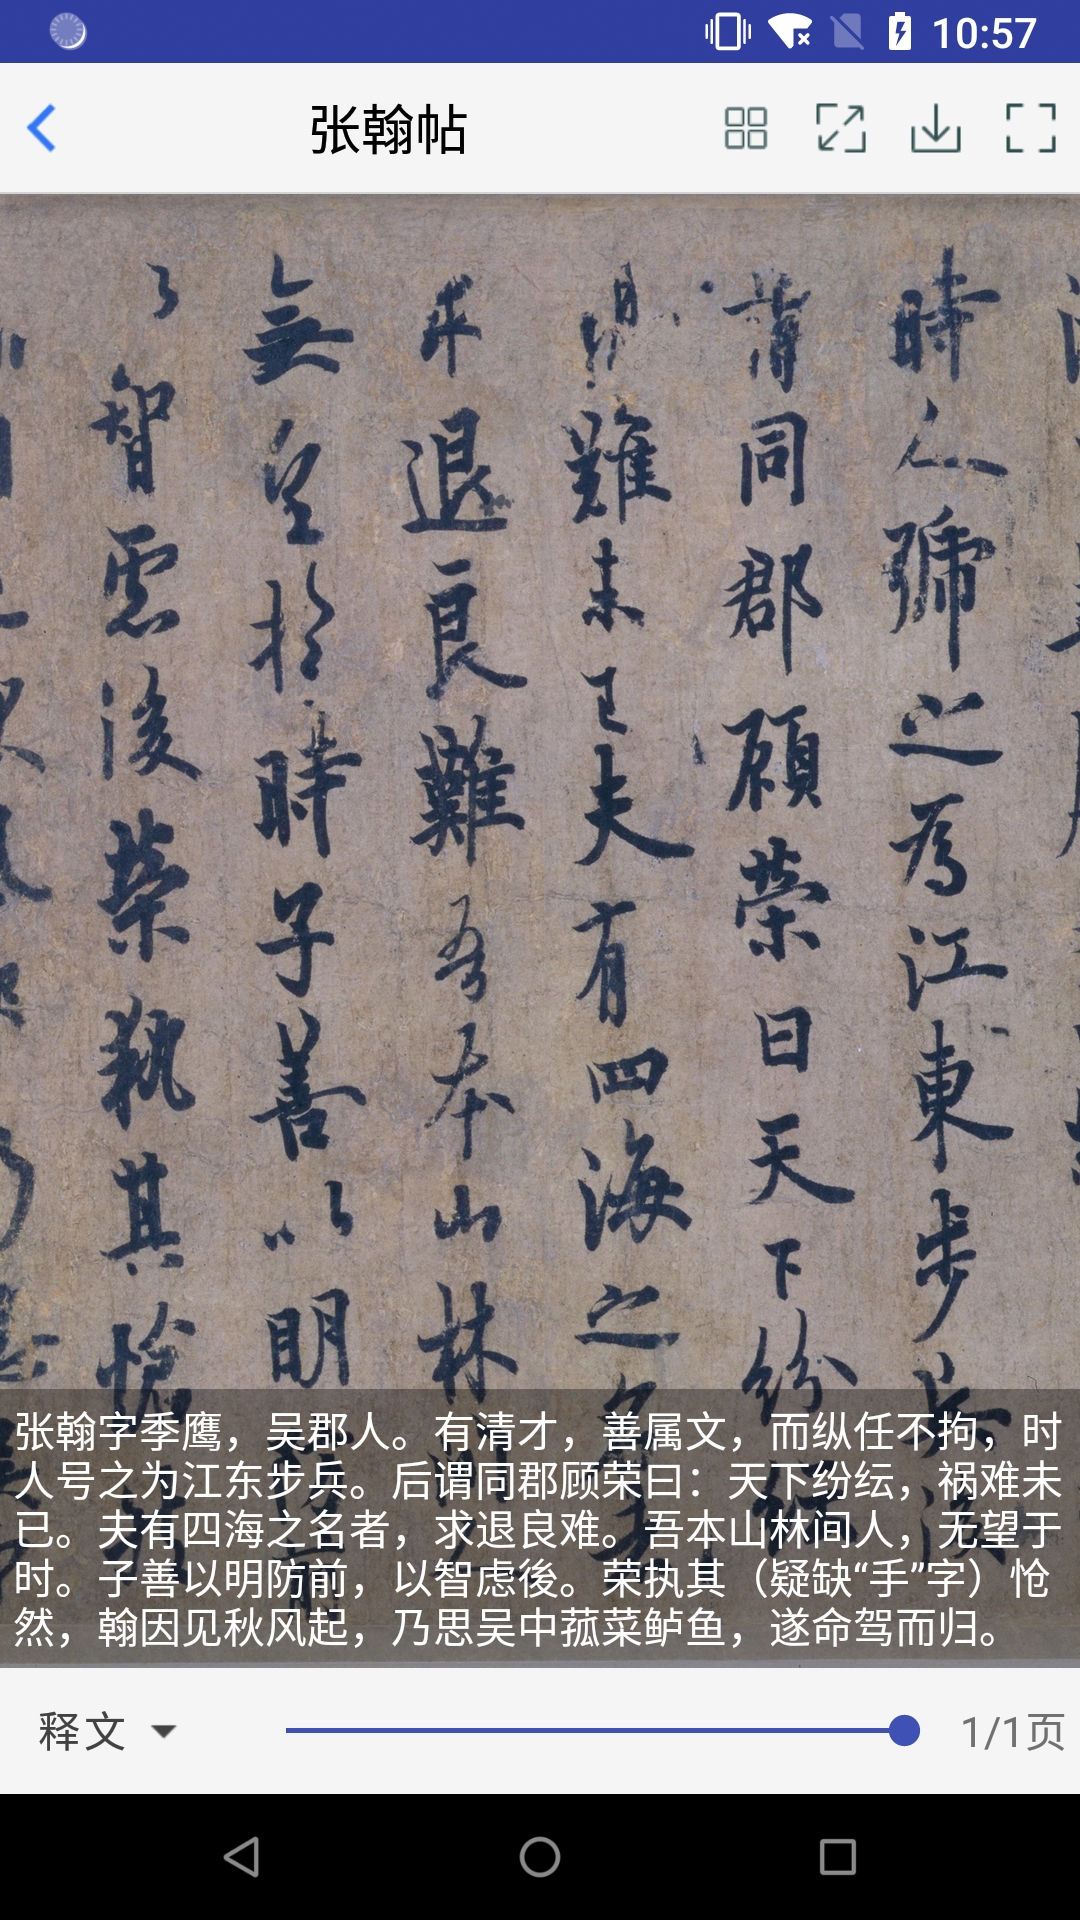 10:57
张翰帖
時人號之為江東步兵後
謂同郡顧榮曰天下紛
難未已夫有四海之名
求退良難吾本山林
無望於時子善以明
以智慮後榮執其愴
张翰字季鹰，吴郡人。有清才，善属文，而纵任不拘，时
人号之为江东步兵。后谓同郡顾荣曰：天下纷纭，祸难未
已。夫有四海之名者，求退良难。吾本山林间人，无望于
时。子善以明防前，以智虑後。荣执其（疑缺“手”字）怆
然，翰因见秋风起，乃思吴中菰菜鲈鱼，遂命驾而归。
释文
1/1页